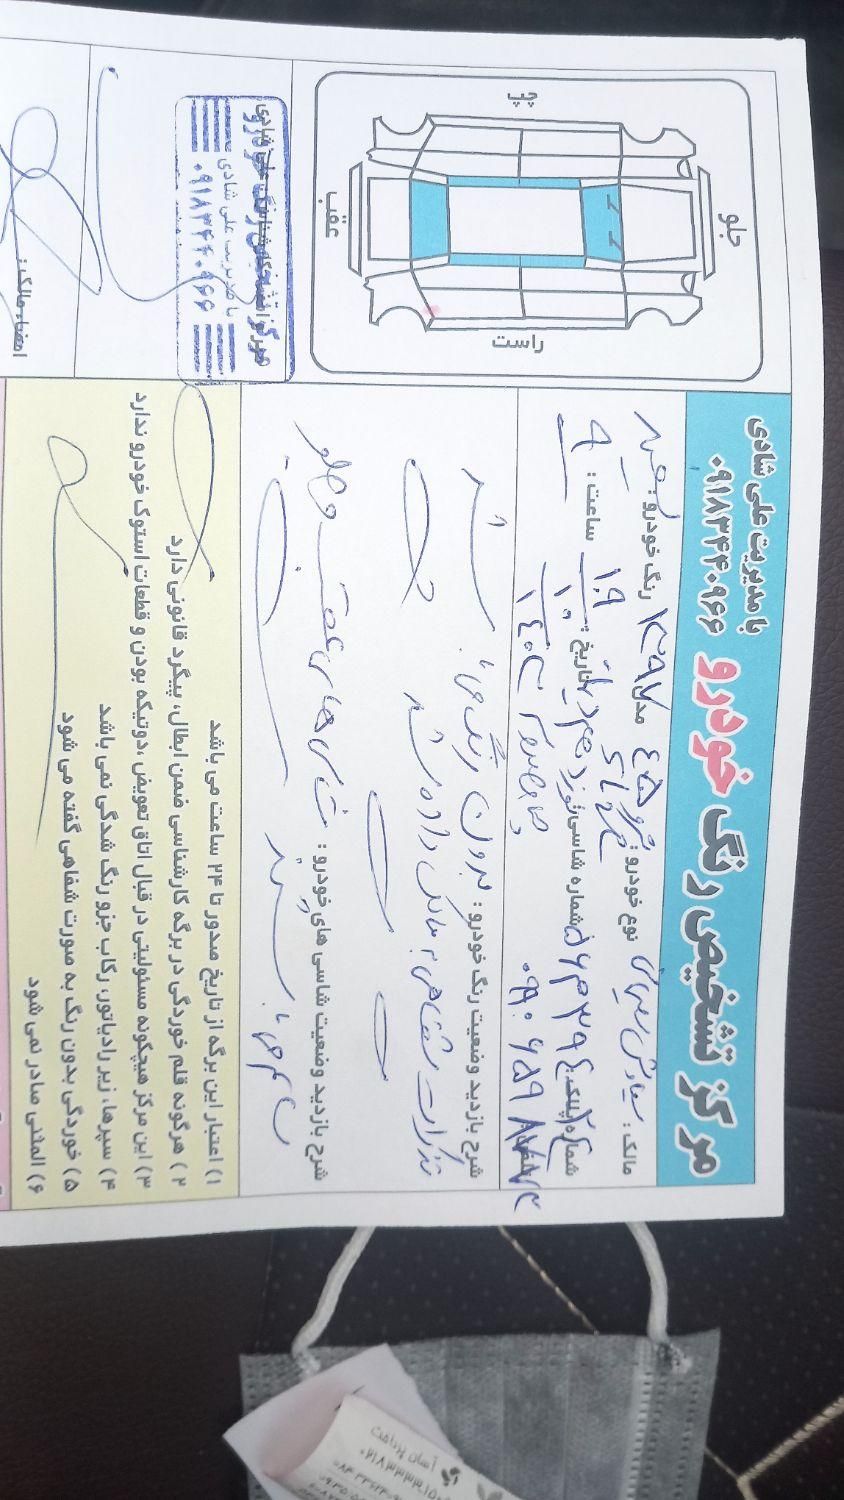 مرکز تشخیص رنگ خودرو
با مدیریت علی شادی
۰۹۱۸۳۴۴۰۹۶۶
مالک:
نوع خودرو: پژو ۴۰۵
مدل: ۱۳۹۷
رنگ خودرو: سفید
شماره پلاک:
شماره شاسی:
تاریخ:
ساعت: ۹
شرح بازدید وضعیت رنگ خودرو: بدون رنگ می‌باشد.
تذکرات شفاهی به مالک داده شد
شرح بازدید وضعیت شاسی های خودرو: شاسی های عقب و جلو
سالم می‌باشند
۱) اعتبار این برگه از تاریخ صدور تا ۲۴ ساعت می باشد
۲) هرگونه قلم خوردگی در برگه کارشناسی ضمن ابطال، پیگرد قانونی دارد
۳) این مرکز هیچگونه مسئولیتی در قبال اتاق تعویض، دوتیکه بودن و قطعات استوک خودرو ندارد
۴) سپرها، زیر رادیاتور، رکاب جزو رنگ شدگی نمی باشد
۵) خوردگی بدون رنگ به صورت شفاهی گفته می شود
۶) المثنی صادر نمی شود
چپ
جلو
عقب
راست
با مدیریت علی شادی
۰۹۱۸۳۴۴۰۹۶۶
امضاء مالک:
آسان پرداخت